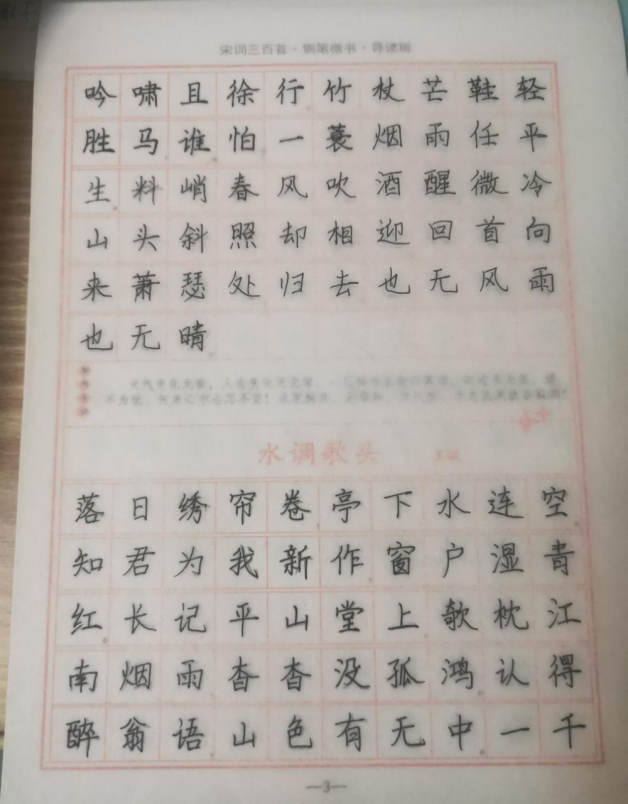 宋词三百首·钢笔楷书·
吟啸且徐行竹杖芒鞋轻
胜马谁怕一蓑烟雨任平
生料峭春风吹酒醒微冷
山头斜照却相迎回首向
来萧瑟处归去也无风雨
也无晴
水调歌头
落日绣帘卷亭下水连空
知君为我新作窗户湿青
红长记平山堂上欹枕江
南烟雨杳杳没孤鸿认得
醉翁语山色有无中一千
—3—